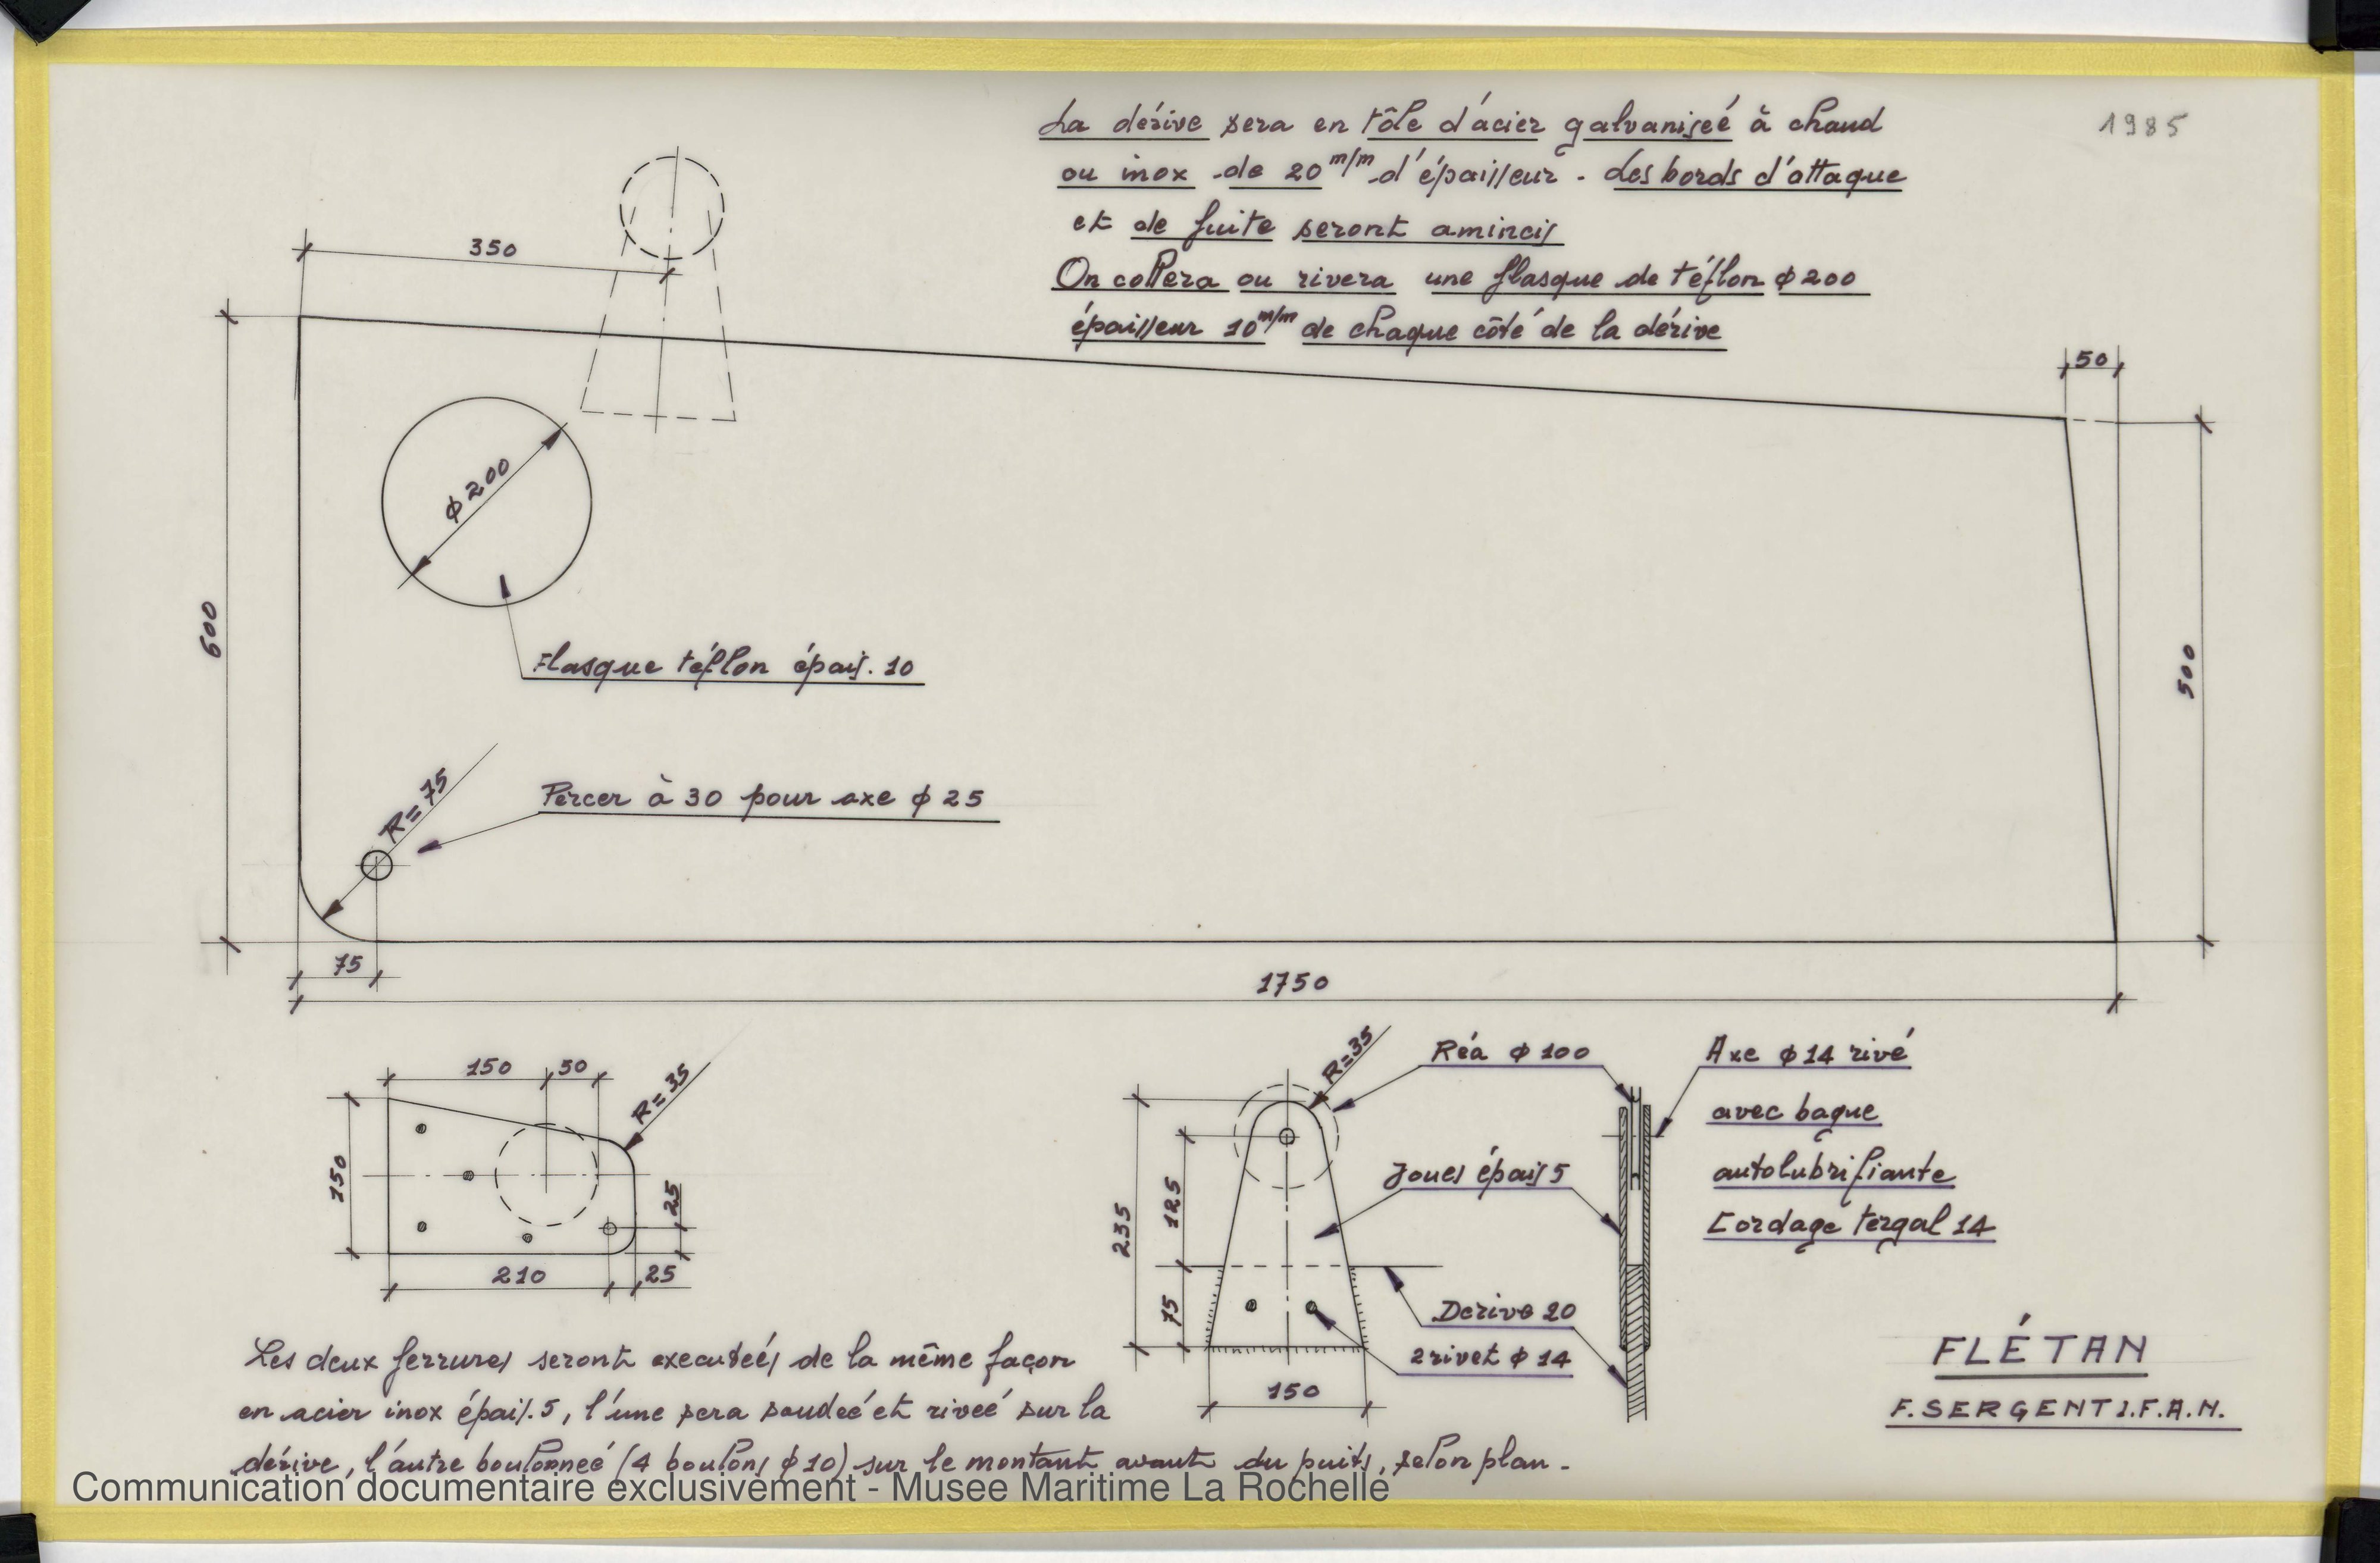 La dérive sera en tôle d'acier galvaniseé à chaud
ou inox de 20 m/m d'épaisseur - Les bords d'attaque
et de fuite seront amincis
On collera ou rivera une flasque de téflon ϕ 200
épaisseur 10 m/m de chaque côté de la dérive
1985
350
50
600
ϕ 200
500
Flasque téflon épais. 10
R=75
Percer à 30 pour axe ϕ 25
75
1750
150
50
R=35
150
25
210
25
R=35
Réa ϕ 100
Axe ϕ 14 rivé
avec bague
autolubrifiante
Cordage tergal 14
Joues épais 5
235
125
75
Derive 20
2 rivet ϕ 14
150
Les deux ferrures seront executeés de la même façon
en acier inox épais. 5, l'une sera soudeé et riveé sur la
dérive, l'autre boulonneé (4 boulons ϕ 10) sur le montant avant du puits, selon plan -
FLÉTAN
F. SERGENT I.F.A.N.
Communication documentaire exclusivement - Musee Maritime La Rochelle